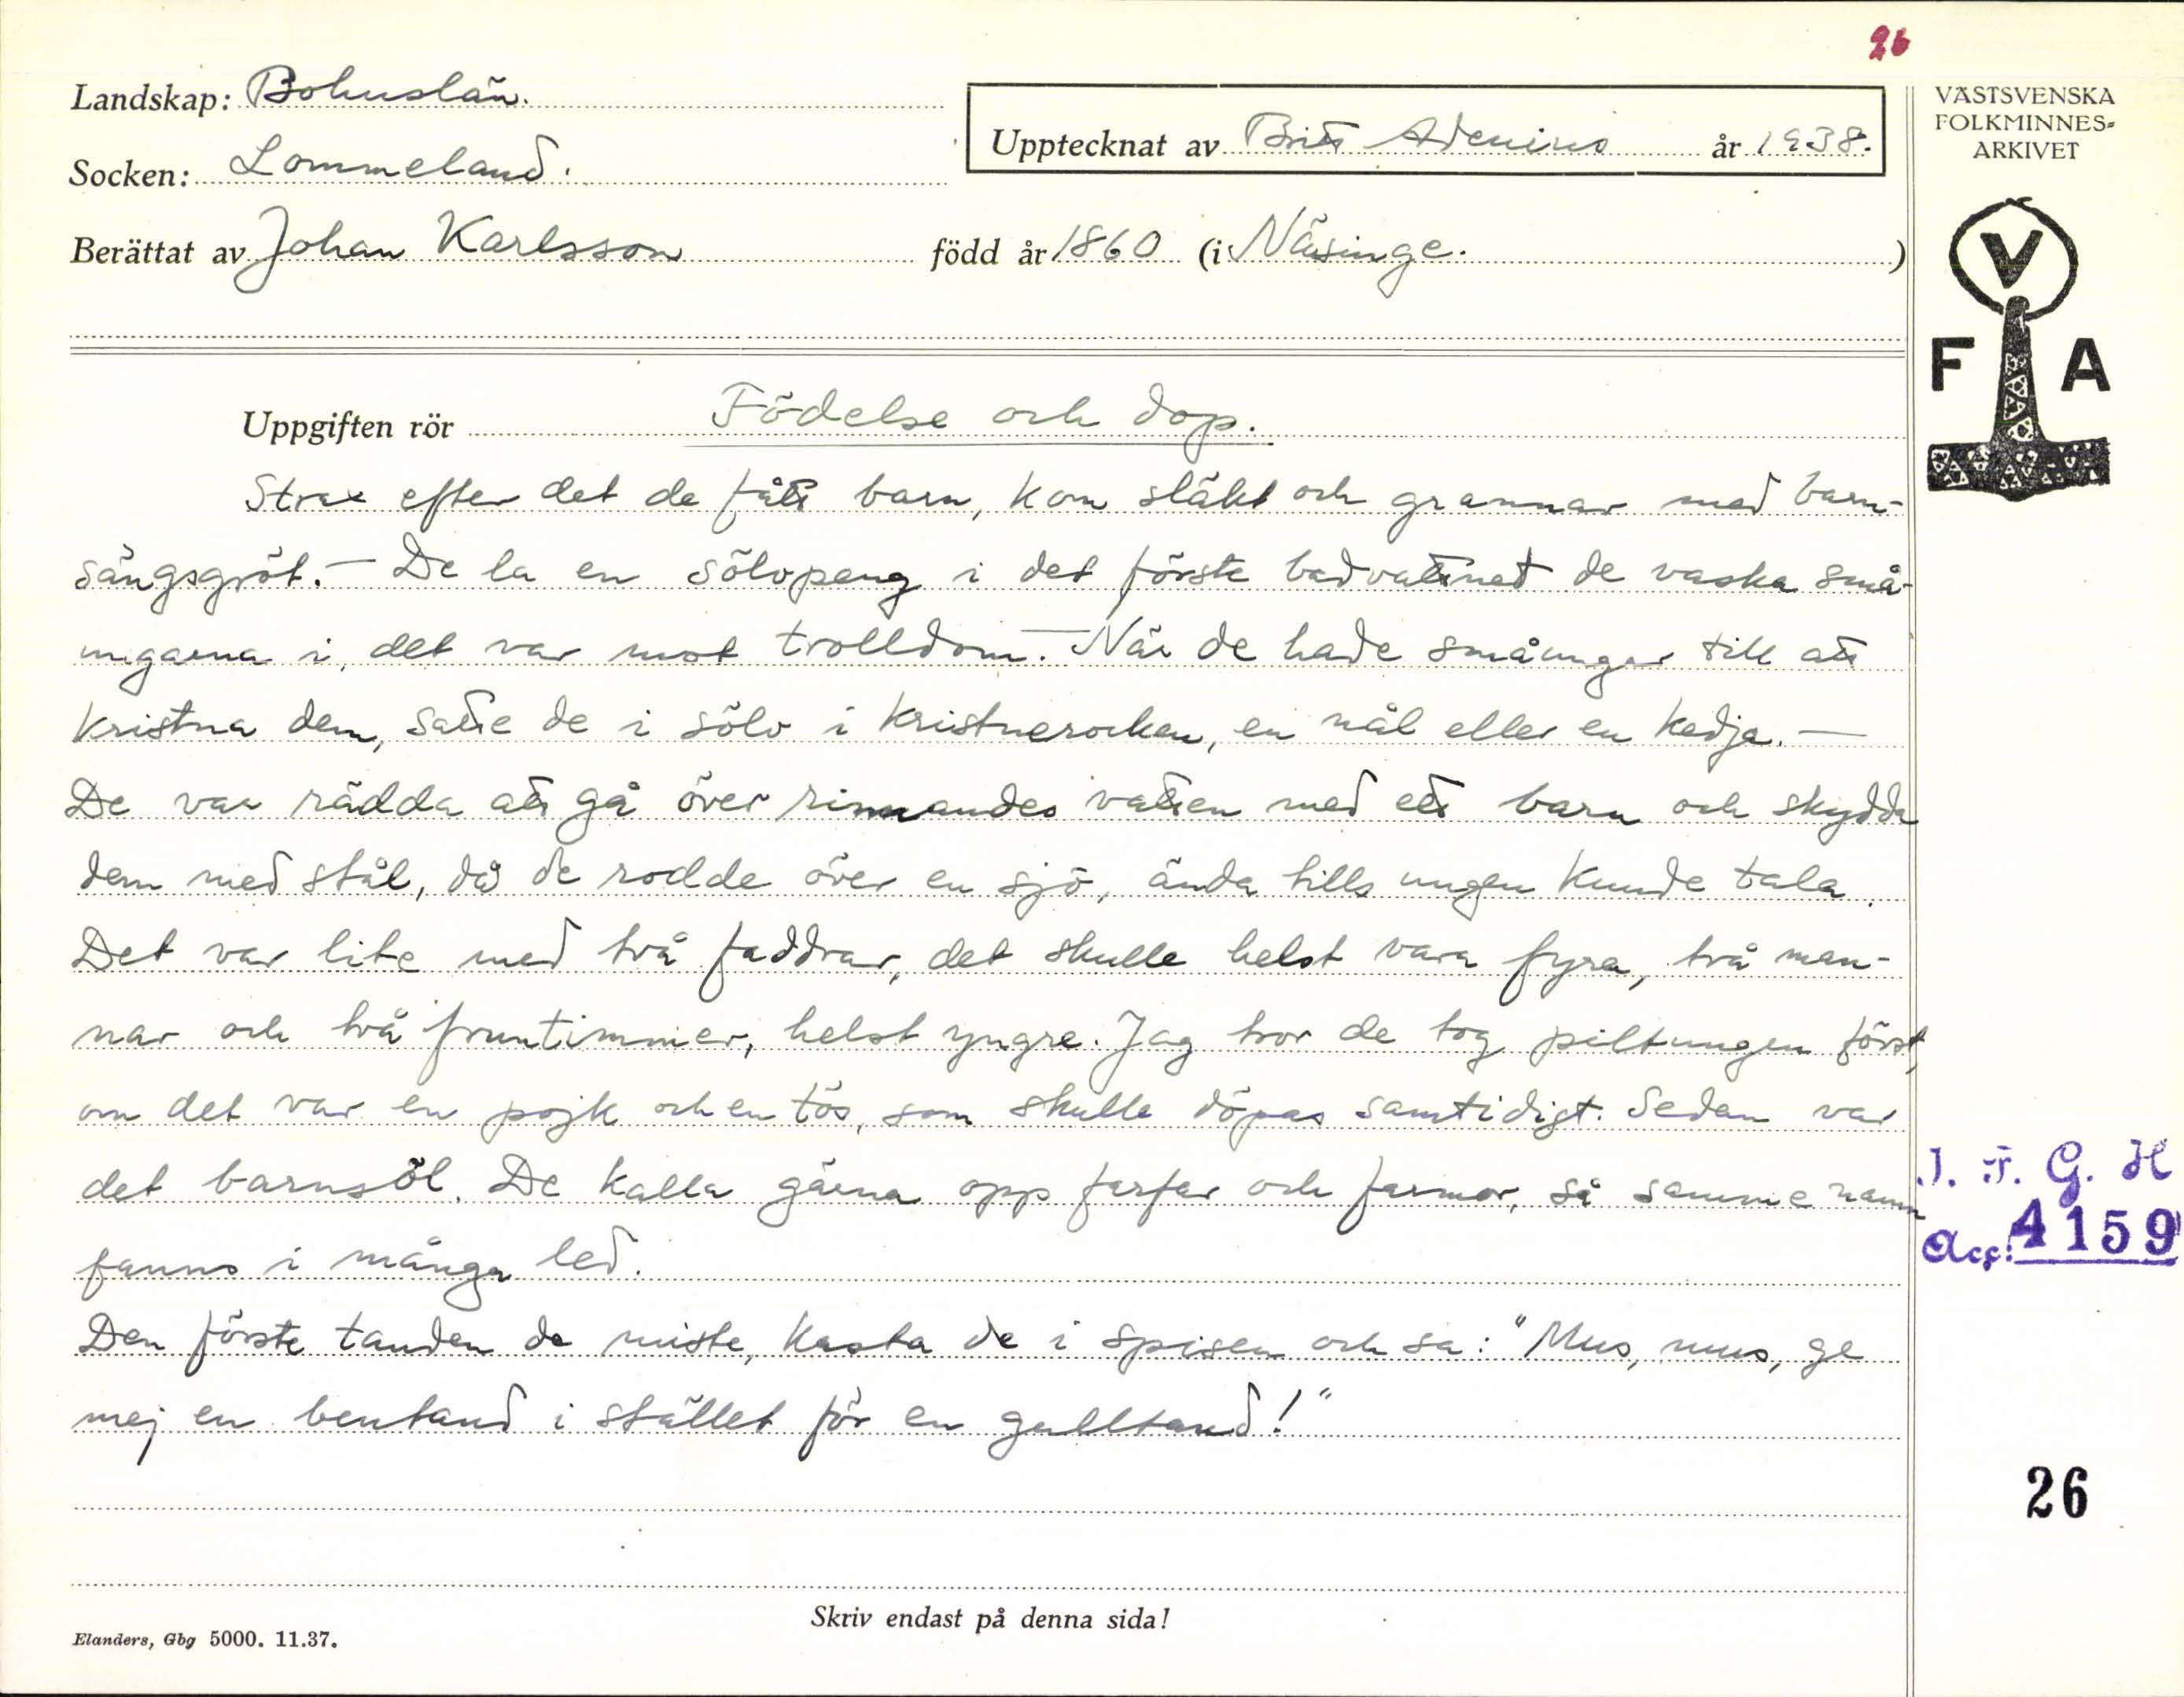 26
Landskap: Bohuslän.
Socken: Lommeland.
Upptecknat av Britt Adenius år 1938.
Berättat av Johan Karlsson född år 1860 (i Näsinge. )
VÄSTSVENSKA
FOLKMINNES-
ARKIVET
V
F A
Uppgiften rör Födelse och dop.
Strax efter det de fått barn, kom släkt och grannar med barn-
sängsgröt. — De la en sölvpeng i det förste badvattnet de vaska små-
ungarna i, det var mot trolldom. — När de hade småungar till att
kristna dem, satte de i sölv i kristnerocken, en nål eller en kedja. —
De var rädda att gå över rinnandes vatten med ett barn och skydda
dem med stål, då de rodde över en sjö, ända tills ungen kunde tala.
Det var lite med två faddrar, det skulle helst vara fyra, två man-
nar och två fruntimmer, helst yngre. Jag tror de tog piltungen först,
om det var en pojk och en tös, som skulle döpas samtidigt. Sedan var
det barnsöl. De kalla gärna opp farfar och farmor, så samme namn
fanns i många led.
Den förste tanden de miste, kasta de i spisen och sa: "Mus, mus, ge
mej en bentand i stället för en gulltand!"
I. F. G. H
Acc: 4159
26
Skriv endast på denna sida!
Elanders, Gbg 5000. 11.37.